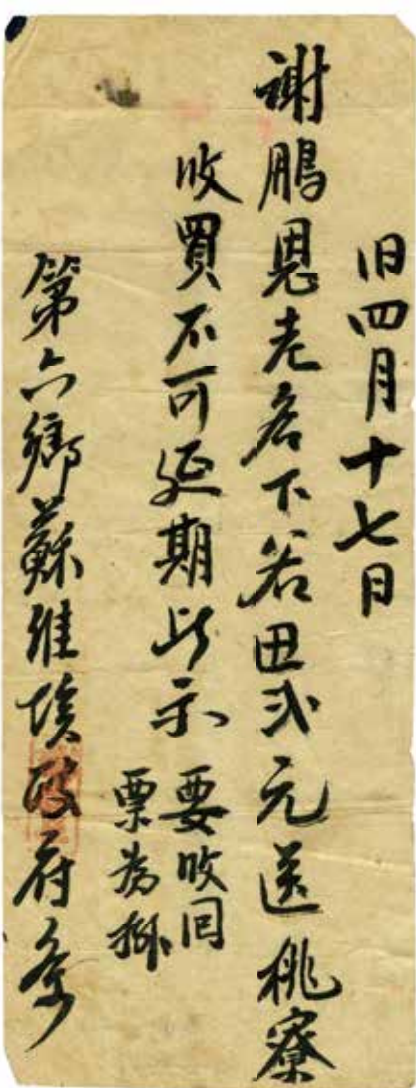 旧四月十七日
謝鵬恩老名下谷田弍元送桃寮
收買不可延期此示
要收回
票為
第六鄉蘇維埃政府条